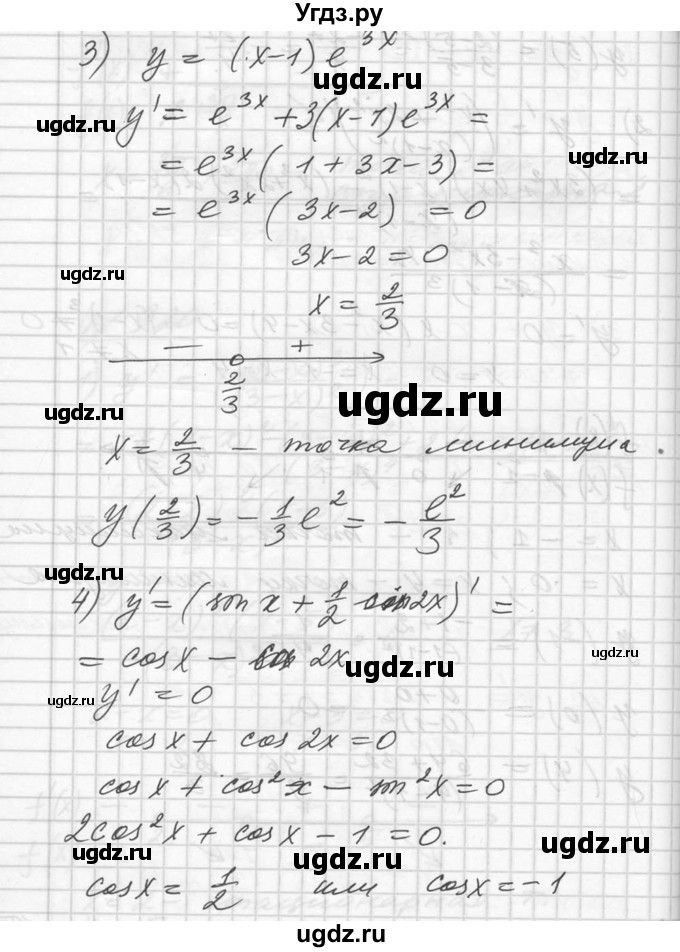 Угдз.ру
3) y = (x-1) e^{3x}
ugdz.ru
y' = e^{3x} + 3(x-1)e^{3x} =
ugdz.ru
ugdz.ru
= e^{3x} ( 1 + 3x - 3) =
= e^{3x} ( 3x-2) = 0
3x - 2 = 0
ugdz.ru
ugdz.ru
x = 2/3
— +
2/3
ugdz.ru
ugdz.ru
ugdz.ru
x = 2/3 — точка минимума.
y(2/3) = -1/3 e^2 = - e^2/3
ugdz.ru
4) y' = (sin x + 1/2 sin 2x)' =
= cos x - cos 2x
ugdz.ru
ugdz.ru
y' = 0
ugdz.ru
cos x + cos 2x = 0
cos x + cos^2 x - sin^2 x = 0
2cos^2 x + cos x - 1 = 0.
ugdz.ru
ugdz.ru
ugdz.ru
cos x = 1/2 или cos x = -1